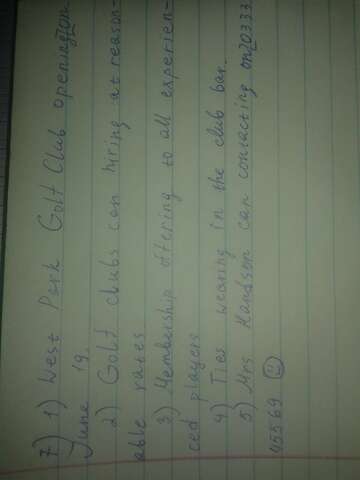 7) 1) West Park Golf Club opening on
June 19.
2) Golf clubs can hiring at reason-
able rates
3) Membership offering to all experien-
ced players
4) Ties wearing in the club bar.
5) Mrs can contacting on 20333
45569